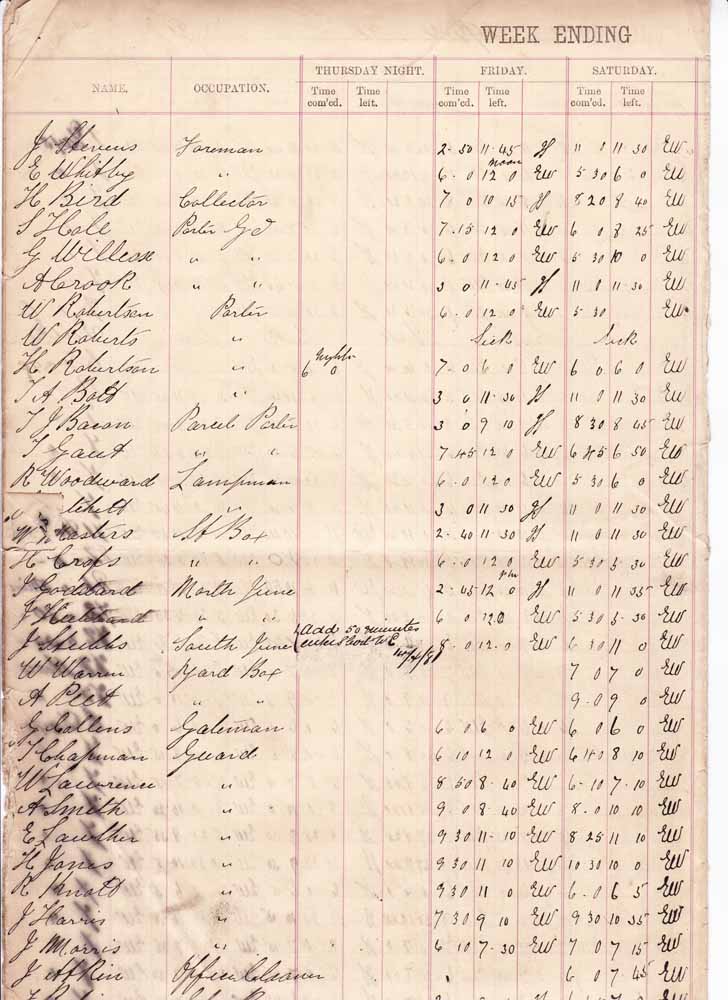 WEEK ENDING
NAME. OCCUPATION. THURSDAY NIGHT. FRIDAY. SATURDAY.
Time com'cd. Time left. Time com'cd. Time left. Time com'cd. Time left.
J Stevens Foreman 2. 50 11. 45 H 11 0 11 30 EW
E Whitby " 6. 0 12 noon 0 EW 5 30 6 0 EW
H Bird Collector 7 0 10 15 H 8 20 8 40 EW
S Hole Porter Gd 7. 15 12 0 EW 6 0 8 25 EW
G Willcox " " 6. 0 12 0 EW 5 30 10 0 EW
A Crook " " 3 0 11. 45 H 11 0 11. 30 EW
W Robertson Porter 6. 0 12 0 EW 5 30 EW
W Roberts " Sick Sick
H Robertson " 6 0 7. 0 6 0 EW 6 0 6 0 EW
T A Bott " 3 0 11. 30 H 11 0 11 30 EW
T J Bacon Parcels Porter 3 0 9 10 H 8 30 8 45 EW
T Gant " " 7 45 12 0 EW 6 45 6 50 EW
R Woodward Lampman 6. 0 12 0 EW 5 30 6 0 EW
" 3 0 11 30 H 11 0 11 30 EW
W Masters St Box 2. 40 11. 30 H 11 0 11 30 EW
H Crofs " " 6. 0 12 0 EW 5 30 5. 30 EW
J Goddard North June 2. 45 12 0 H 11 0 11 35 EW
J Hubband " " 6 0 12. 0 EW 5 30 5. 30 EW
J Stubbs South June Add 50 minutes 8. 0 12. 0 EW 6 30 11 0 EW
W Warren Yard Box 7 0 7 0 EW
A Peet " " 9. 0 9 0 EW
G Collens Gateman 6 0 6 0 EW 6 0 6 0 EW
T Chapman Guard 6 10 12 0 EW 6 40 8 10 EW
W Lawrence " 8 50 8. 40 EW 6. 10 7. 10 EW
A Smith " 9 0 8. 40 EW 8. 0 10 10 EW
E Lawther " 9 30 11. 10 EW 8 25 11 10 EW
H Jones " 9 30 11 10 EW 10 30 10 0 EW
R Knott " 9 30 11 0 EW 6. 0 6 5 EW
J Harris " 7 30 9 10 EW 9 30 10 35 EW
J Morris " 6 10 7. 30 EW 7 0 7 15 EW
J Atkin Office Cleaner 6 0 7. 45 EW